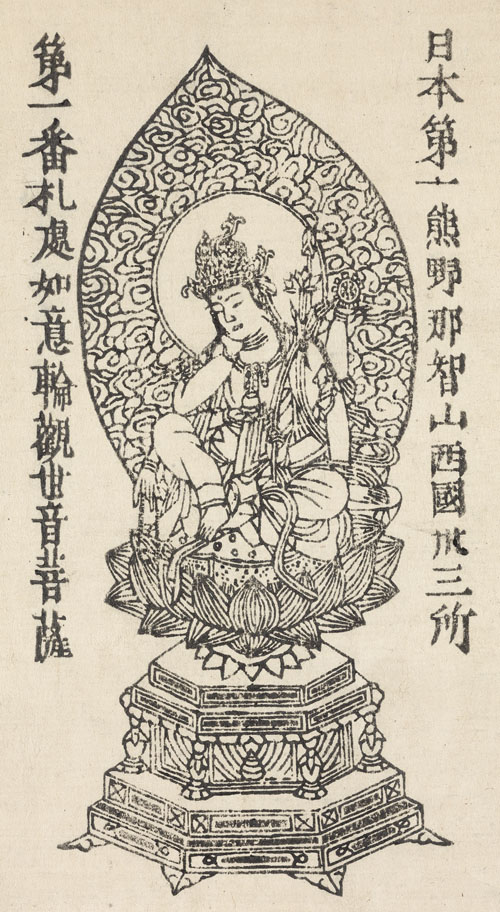 日本第一熊野那智山西國卅三所
第一番札處如意輪觀世音菩薩